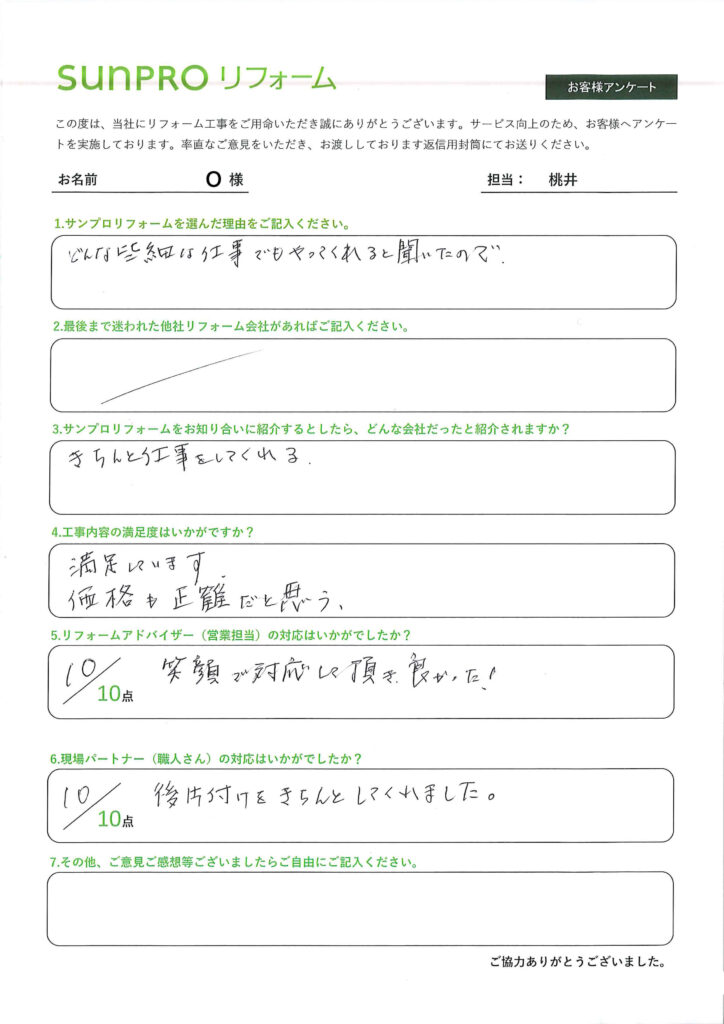 SUNPRO リフォーム
お客様アンケート
この度は、当社にリフォーム工事をご用命いただき誠にありがとうございます。サービス向上のため、お客様へアンケー
トを実施しております。率直なご意見をいただき、お渡ししております返信用封筒にてお送りください。
お名前 O 様 担当： 桃井
1.サンプロリフォームを選んだ理由をご記入ください。
どんな些細な仕事でもやってくれると聞いたので.
2.最後まで迷われた他社リフォーム会社があればご記入ください。
3.サンプロリフォームをお知り合いに紹介するとしたら、どんな会社だったと紹介されますか？
きちんと仕事をしてくれる.
4.工事内容の満足度はいかがですか？
満足しています.
価格も正確だと思う、
5.リフォームアドバイザー（営業担当）の対応はいかがでしたか？
10/10点 笑顔で対応して頂き良かった!
6.現場パートナー（職人さん）の対応はいかがでしたか？
10/10点 後片付けをきちんとしてくれました。
7.その他、ご意見ご感想等ございましたらご自由にご記入ください。
ご協力ありがとうございました。